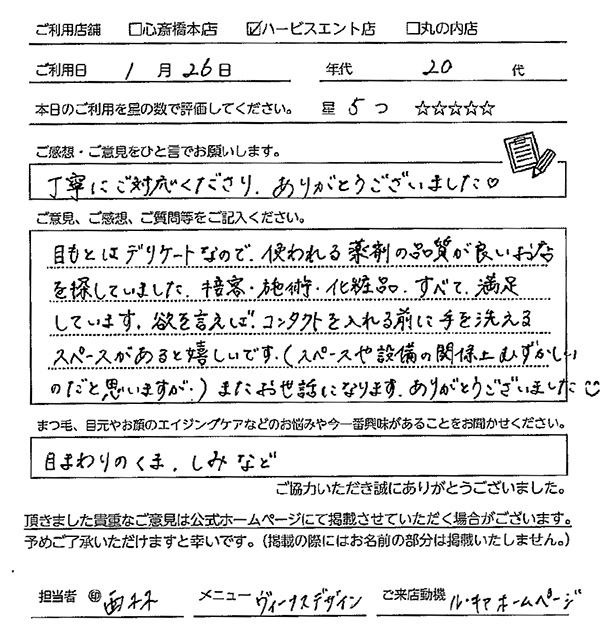 ご利用店舗 □心斎橋本店 ☑ハービスエント店 □丸の内店
ご利用日 1月26日 年代 20代
本日のご利用を星の数で評価してください。 星 5つ ☆☆☆☆☆
ご感想・ご意見をひと言でお願いします。
丁寧にご対応くださり、ありがとうございました♡
ご意見、ご感想、ご質問等をご記入ください。
目もとはデリケートなので、使われる薬剤の品質が良いお店
を探していました。接客・施術・化粧品、すべて、満足
しています。欲を言えば、コンタクトを入れる前に手を洗える
スペースがあると嬉しいです。(スペースや設備の関係上むずかしい
のだと思いますが。)またお世話になります。ありがとうございました
まつ毛、目元やお顔のエイジングケアなどのお悩みや今一番興味があることをお聞かせください。
目まわりのくま、しみなど
ご協力いただき誠にありがとうございました。
頂きました貴重なご意見は公式ホームページにて掲載させていただく場合がございます。
予めご了承いただけますと幸いです。(掲載の際にはお名前の部分は掲載いたしません。)
担当者 ㊞ メニュー ヴィーナスデザイン ご来店動機 ル・キヤ ホームページ